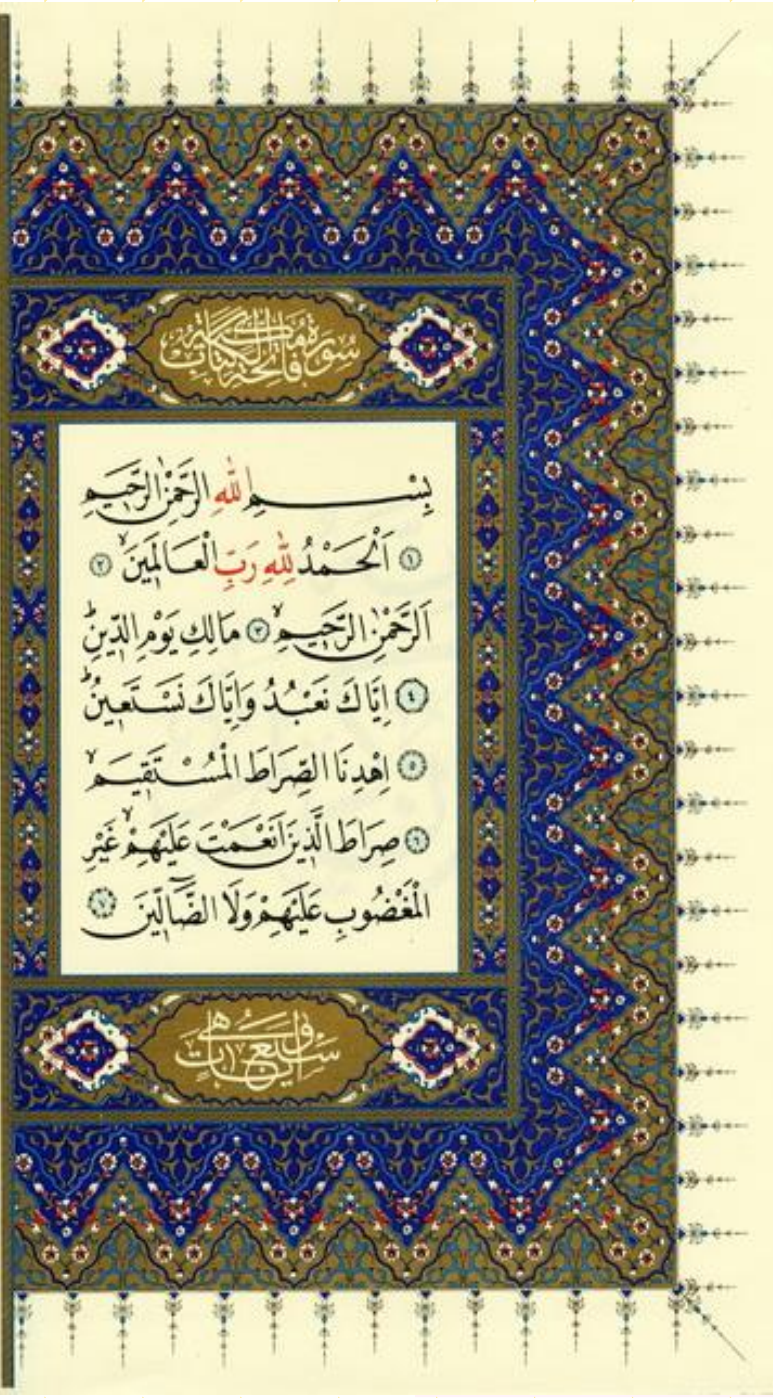 سُورَةُ فَاتِحَةِ الْكِتَابِ مَكِّيَّةٌ
بِسْمِ اللّٰهِ الرَّحْمٰنِ الرَّحٖيمِ
﴿١﴾ اَلْحَمْدُ لِلّٰهِ رَبِّ الْعَالَمٖينَۙ ﴿٢﴾
اَلرَّحْمٰنِ الرَّحٖيمِۙ ﴿٣﴾ مَالِكِ يَوْمِ الدّٖينِؕ
﴿٤﴾ اِيَّاكَ نَعْبُدُ وَاِيَّاكَ نَسْتَعٖينُؕ
﴿٥﴾ اِهْدِنَا الصِّرَاطَ الْمُسْتَقٖيمَۙ
﴿٦﴾ صِرَاطَ الَّذٖينَ اَنْعَمْتَ عَلَيْهِمْۙ غَيْرِ
الْمَغْضُوبِ عَلَيْهِمْ وَلَا الضَّٓالّٖينَ ﴿٧﴾
وَهِيَ سَبْعُ اٰيَاتٍ